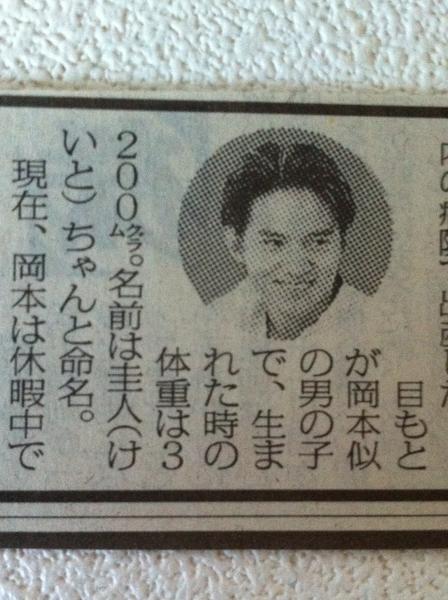 目もと
が岡本似
の男の子
で、生ま
れた時の
体重は３
２００グラム。名前は圭人（け
いと）ちゃんと命名。
現在、岡本は休暇中で